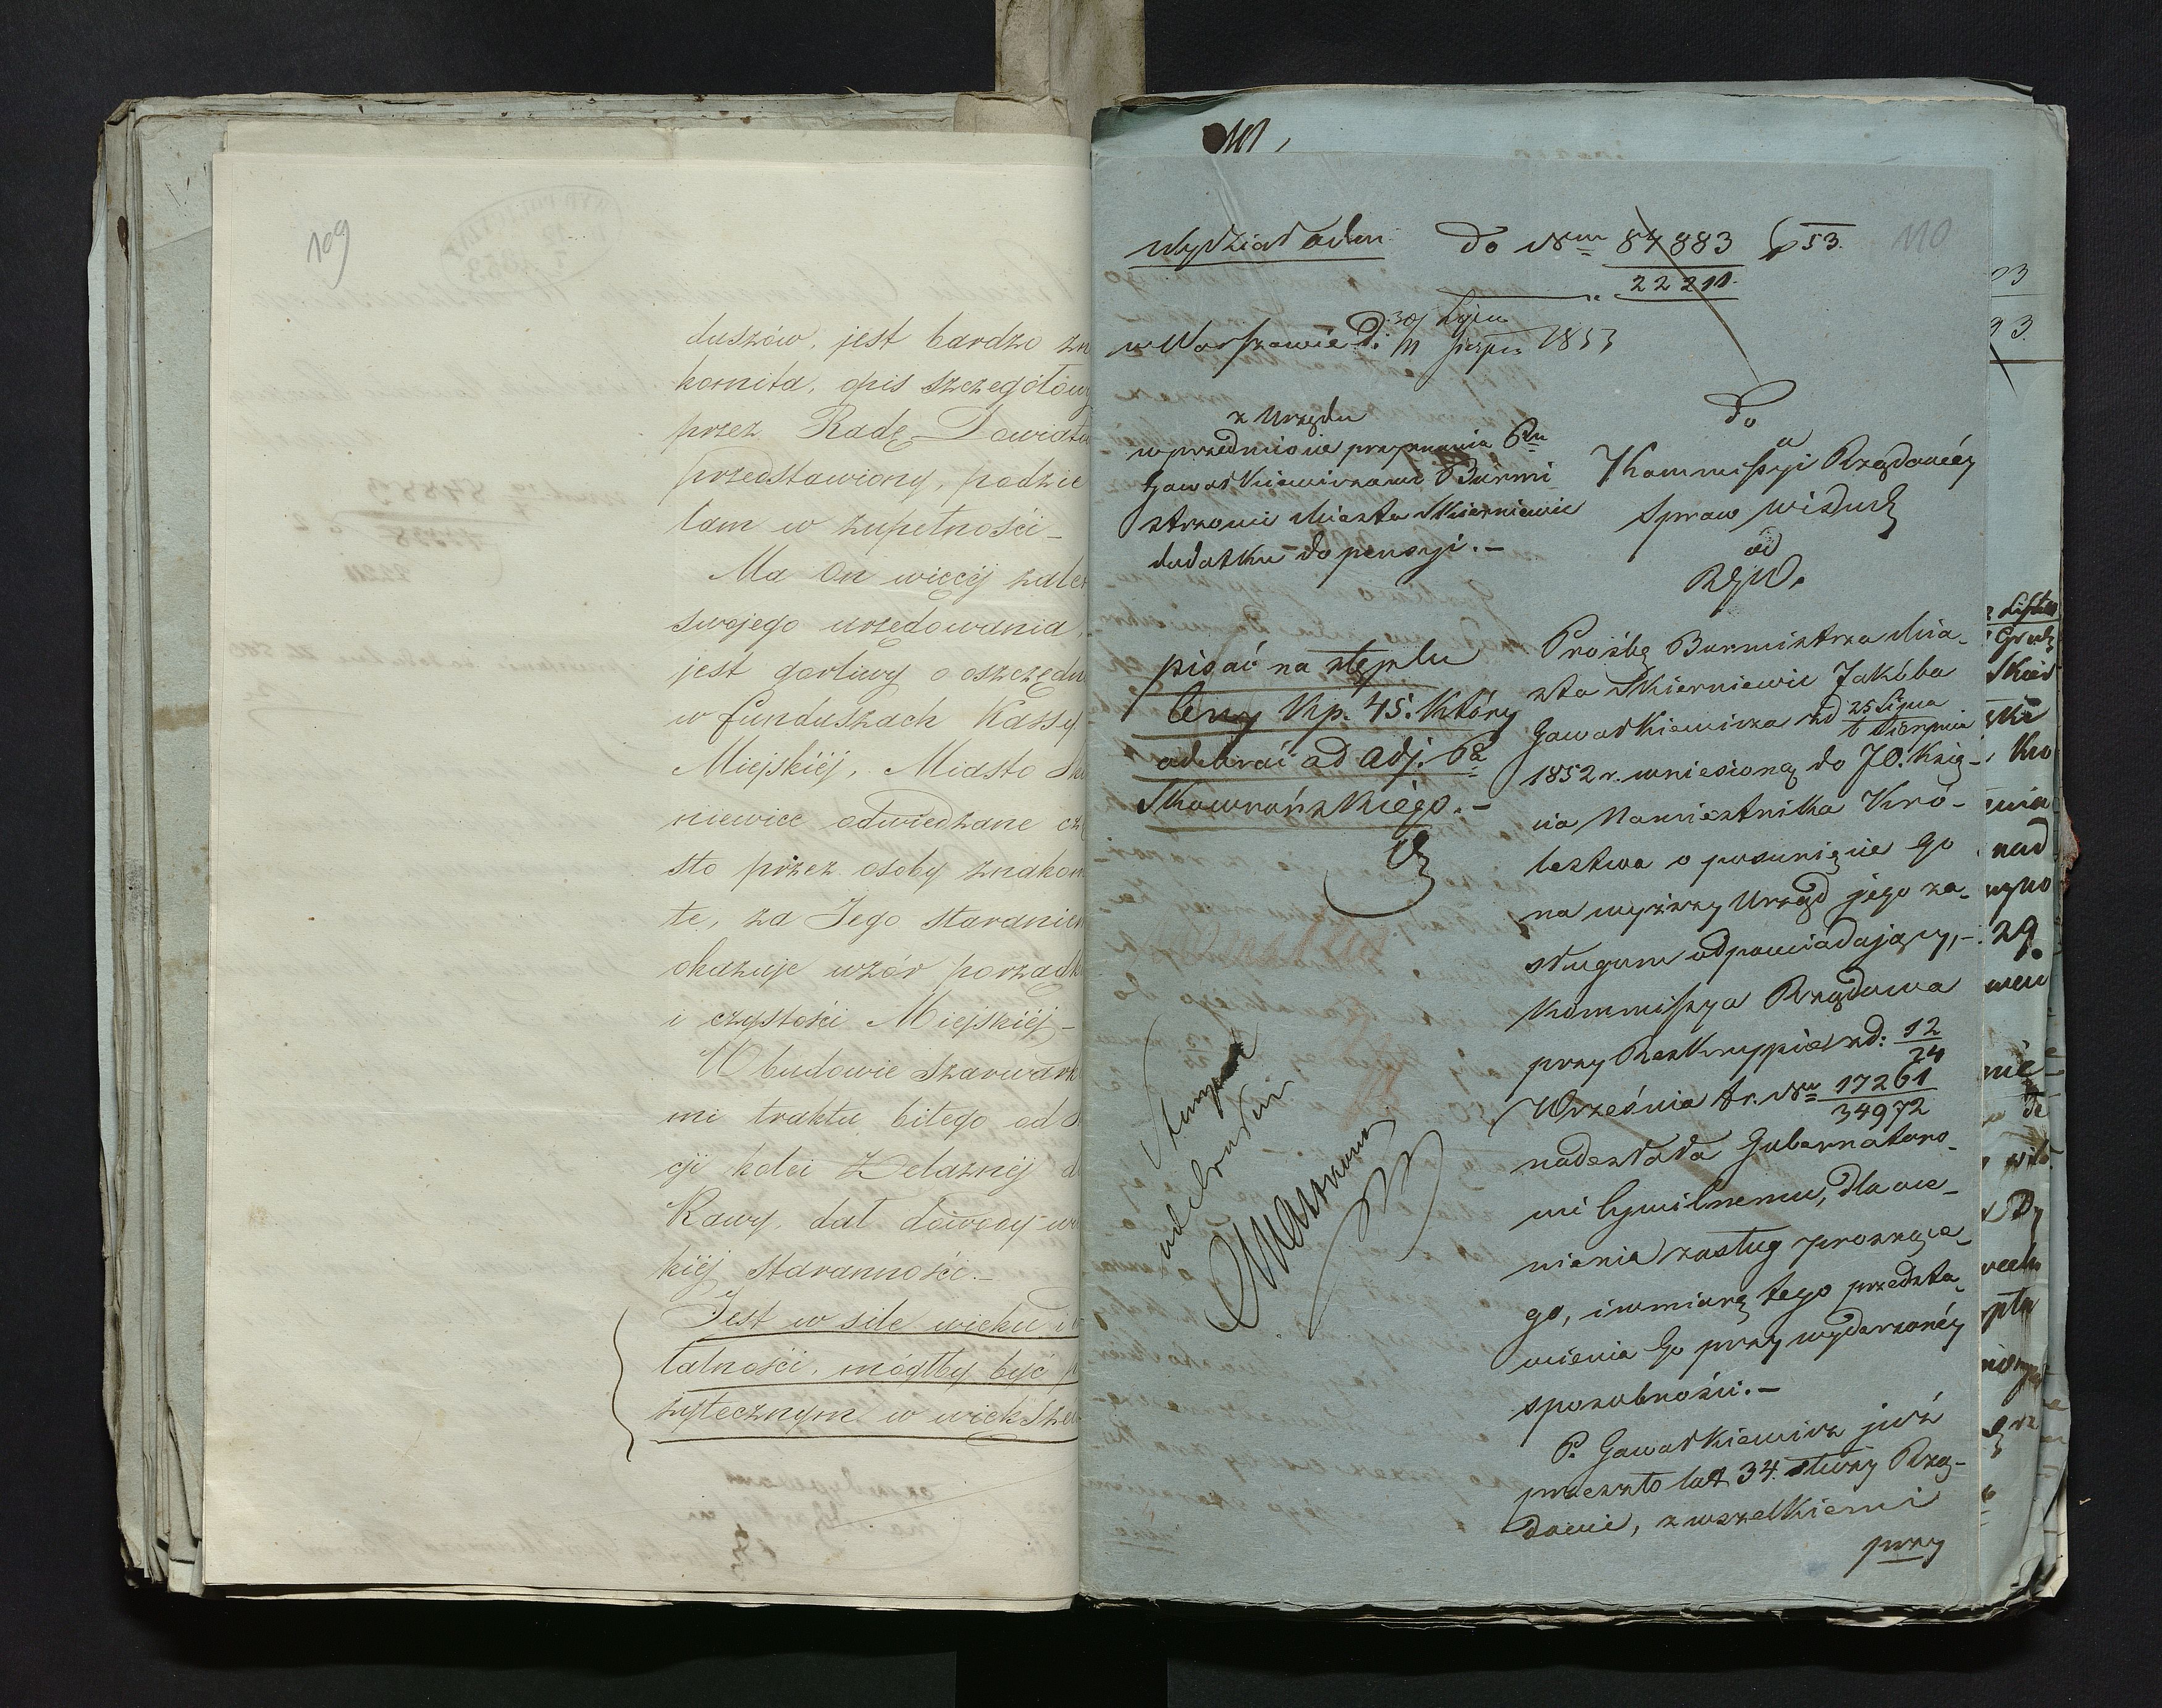 109
duszów, jest bardzo zn
komita, opis szczegółow
przez Radę Powiatu
przedstawiony, podzie
lam w zupełności –
Ma On więcéj zalet
swojego urzędowania,
jest gorliwy o oszczędn
w funduszach Kassy
Miejskiéj, Miasto Skie
niewice odwiedzane cz
sto przez osoby znakom
te, za Jego staraniem
okazuje wzór porządk
i czystości Miejskiéj –
W budowie szarwark
mi traktu bitego od S
cji kolei Żelaznéj d
Rawy, dał dowody w
kiéj staranności. –
Jest w sile wieku i
łalności, mógłby być
żytecznym w większe
110
Wydział Adm. do Nru 84883 / 22211 53.
w Warszawie d. 30 Lipca / 11 Sierpn 1853
z Urzędu
w przedmiocie przyznania Pnu
Gawałkiewiczowi Burmi
strzowi Miasta Skierniewic
dodatku do pensyi. –
pisać na stęplu
Ceny Kp. 45. który
odebrać od Adj. Pa
Skowrońskiego. –
Stempel
odebrałem
do
Kommissyi Rządowéj
Spraw Wewn
od
RzGW.
Prośbę Burmistrza Mia-
sta Skierniewic Jakóba
Gawałkiewicza z d 25 Lipca / 6 Sierpnia
1852 r. wniesioną do JO. Księ-
cia Namiestnika Kró-
lestwa o posunięcie go
na wyższy Urząd jego za-
sługom odpowiadający, –
Kommissya Rządowa
przy Reskrypcie z d: 12 / 24
Września t. r. Nru 17261 / 34972
nadesłała Gubernatoro-
wi Cywilnemu, dla oce-
nienia zasług proszące-
go, i w miarę tego przedsta-
wienia Go przy wydarzonéj
sposobności. –
P. Gawałkiewicz już
przeszło lat 34. służy Rzą-
dowie, z wszelkiemi
przy